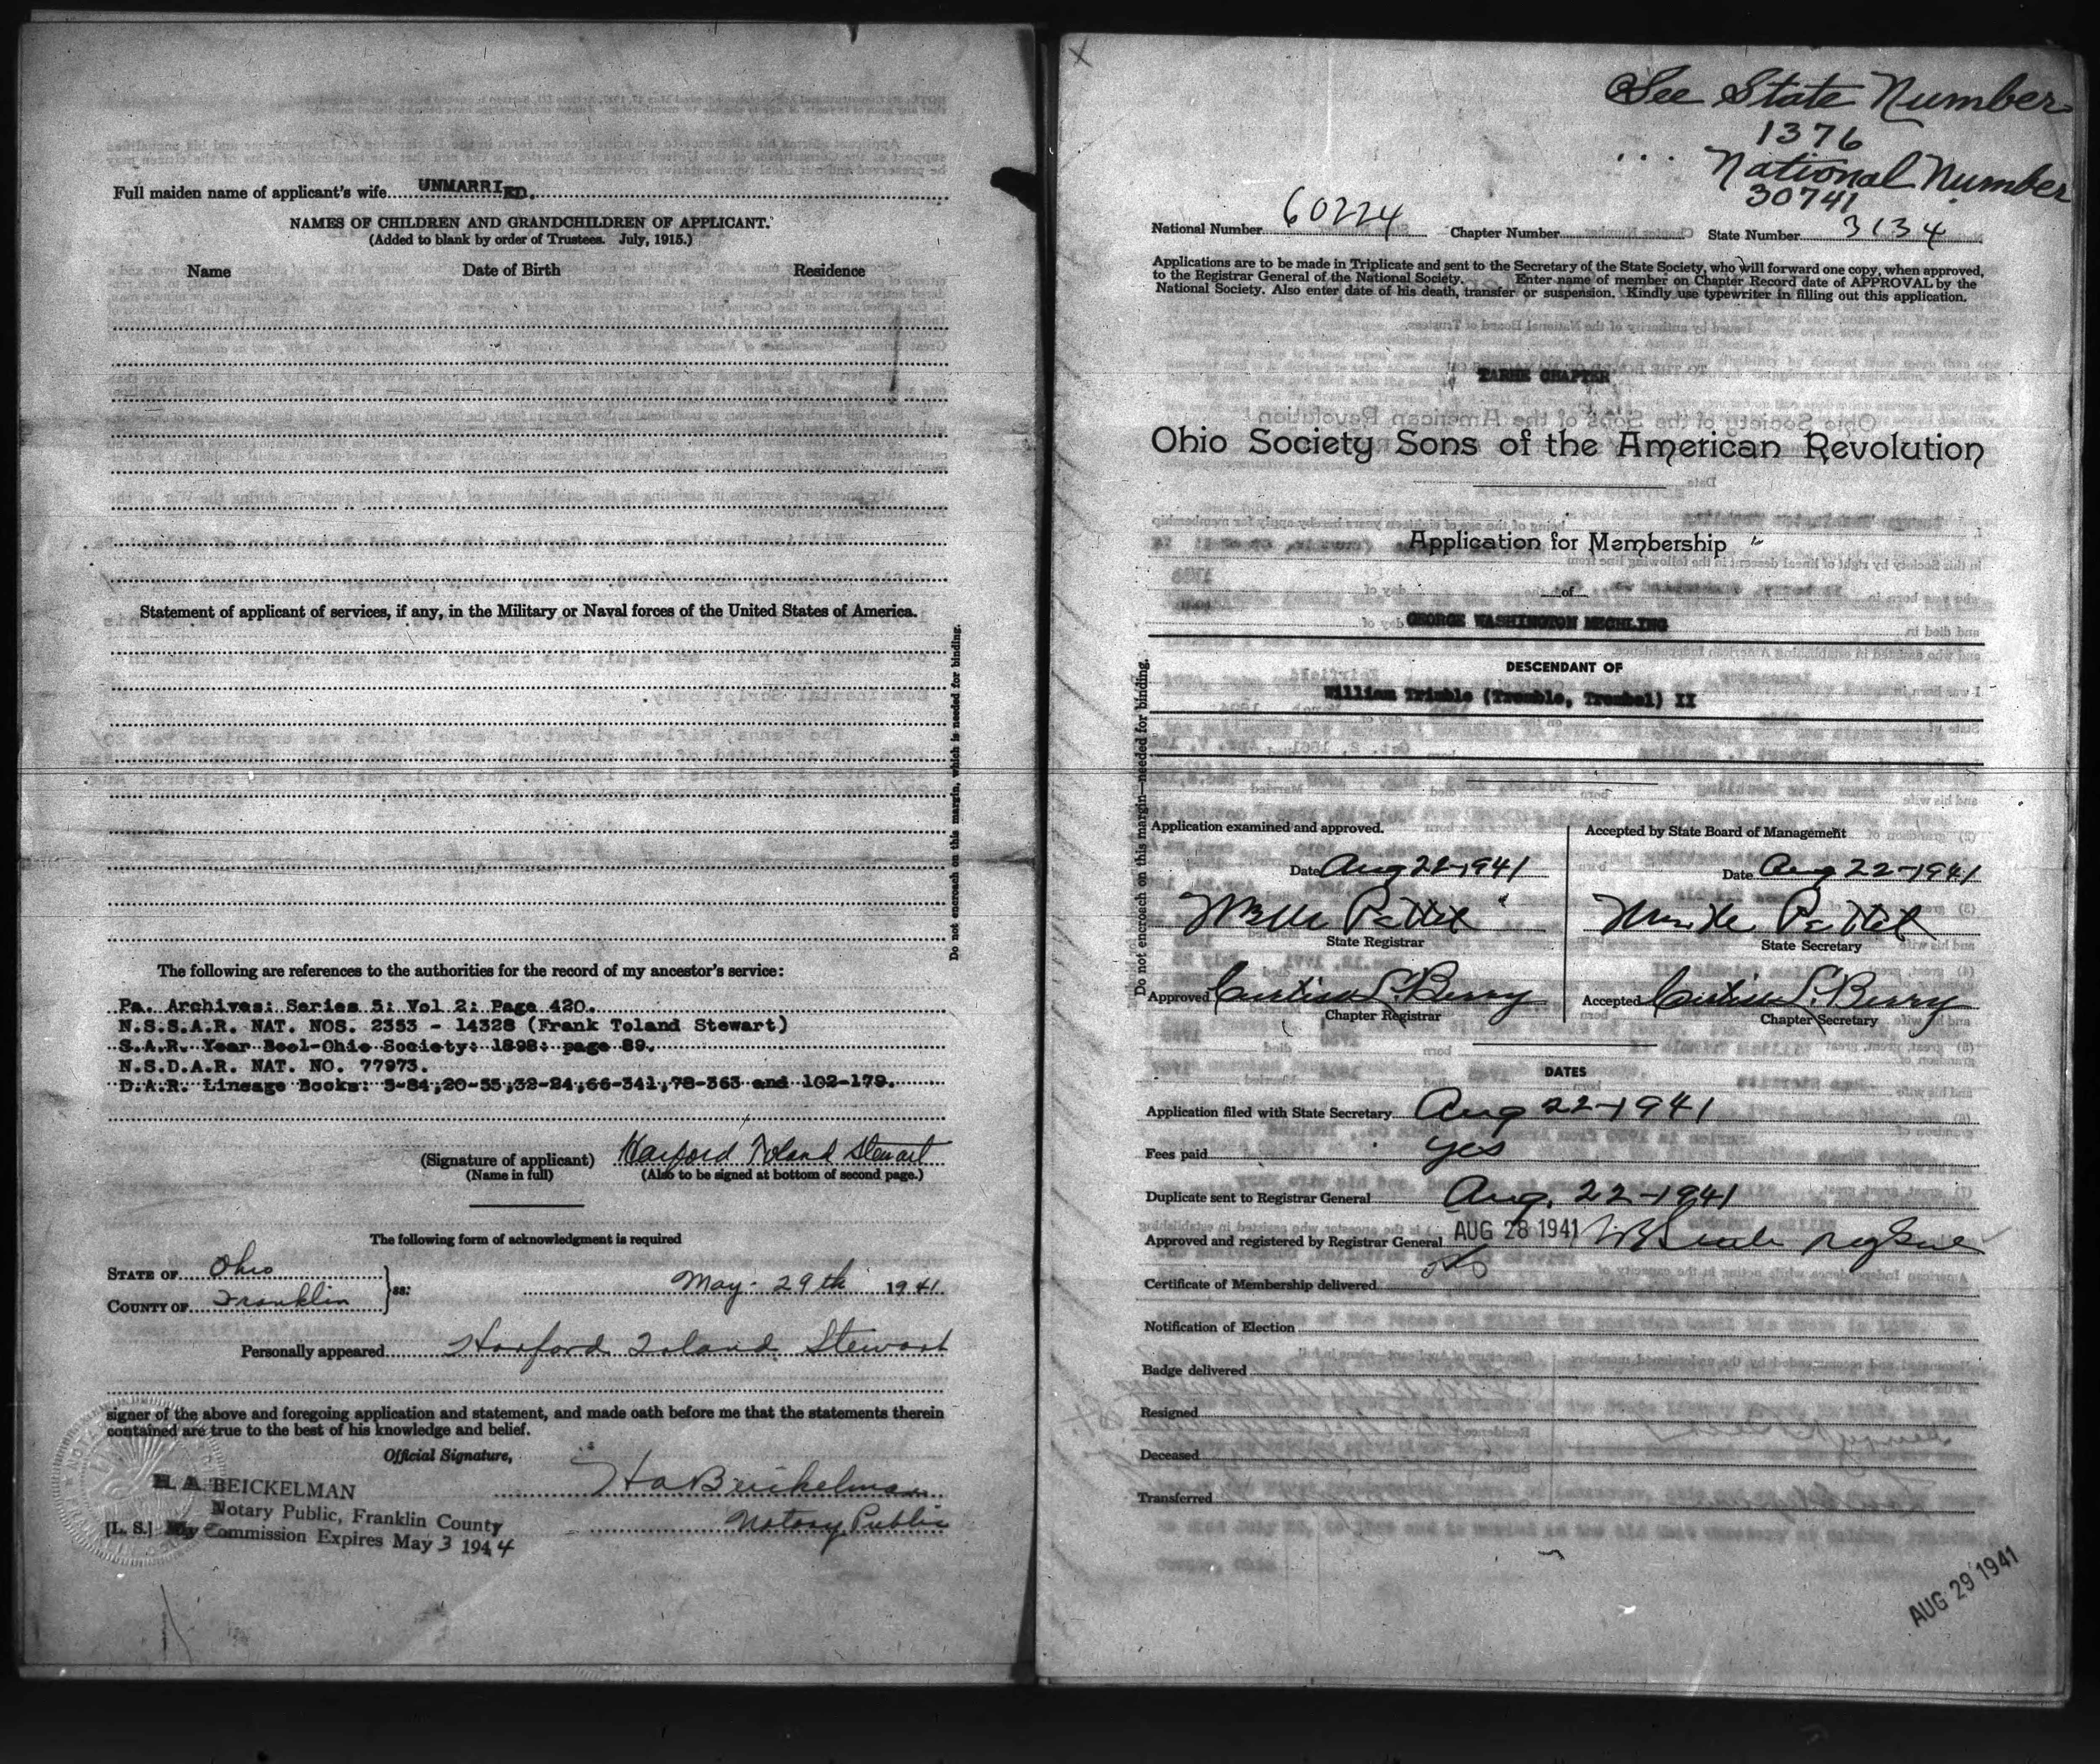 Full maiden name of applicant's wife UNMARRIED.
NAMES OF CHILDREN AND GRANDCHILDREN OF APPLICANT.
(Added to blank by order of Trustees. July, 1915.)
Name Date of Birth Residence
Statement of applicant of services, if any, in the Military or Naval forces of the United States of America.
Do not encroach on this margin, which is needed for binding.
The following are references to the authorities for the record of my ancestor's service:
Pa. Archives: Series 5: Vol 2: Page 420.
N.S.S.A.R. NAT. NOS. 2353 - 14328 (Frank Toland Stewart)
S.A.R. Year Bool-Ohio Society: 1898: page 89.
N.S.D.A.R. NAT. NO. 77973.
D.A.R. Lineage Books: 3-84;20-55;32-24;66-341;78-363 and 102-179.
(Signature of applicant) Harford Toland Stewart
(Name in full) (Also to be signed at bottom of second page.)
The following form of acknowledgment is required
STATE OF Ohio
COUNTY OF Franklin } ss: May 29th 1941
Personally appeared Harford Toland Stewart
signer of the above and foregoing application and statement, and made oath before me that the statements therein
contained are true to the best of his knowledge and belief.
Official Signature,
H. A. BEICKELMAN H A Beickelman
Notary Public, Franklin County
[L. S.] My Commission Expires May 3 1944 Notary Public
See State Number
1376
National Number
30741
National Number 60224 Chapter Number State Number 3134
Applications are to be made in Triplicate and sent to the Secretary of the State Society, who will forward one copy, when approved,
to the Registrar General of the National Society. Enter name of member on Chapter Record date of APPROVAL by the
National Society. Also enter date of his death, transfer or suspension. Kindly use typewriter in filling out this application.
TARHE CHAPTER
Ohio Society Sons of the American Revolution
Application for Membership
of
GEORGE WASHINGTON MECHLING
DESCENDANT OF
William Trimble (Tremble, Trembel) II
Do not encroach on this margin—needed for binding.
Application examined and approved. Accepted by State Board of Management
Date Aug 22-1941 Date Aug 22-1941
State Registrar State Secretary
Approved Curtiss L. Berry Accepted Curtiss L. Berry
Chapter Registrar Chapter Secretary
DATES
Application filed with State Secretary Aug 22-1941
Fees paid yes
Duplicate sent to Registrar General Aug. 22-1941
Approved and registered by Registrar General AUG 28 1941
Certificate of Membership delivered
Notification of Election
Badge delivered
Resigned
Deceased
Transferred
AUG 29 1941